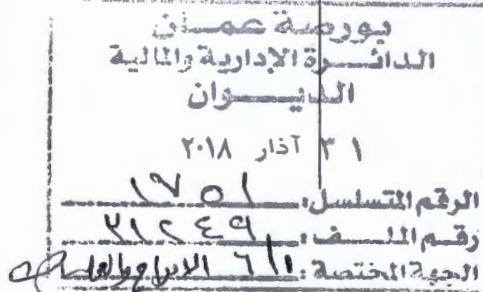 بورصة عمان
الدائرة الإدارية والمالية
الديوان
٣١ آذار ٢٠١٨
الرقم المتسلسل: ١٧٥١
رقم الملف: ٣١٢٤٩
الجهة المختصة: ٦/١١ الادراج والعمليات